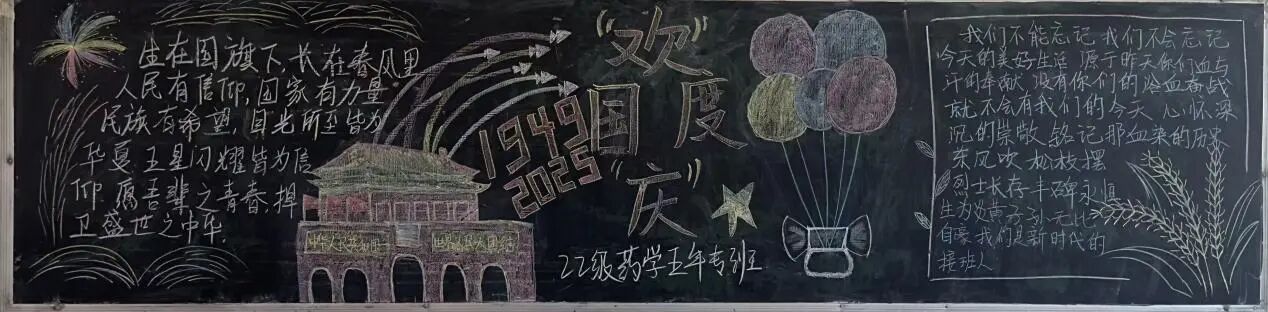 生在国旗下,长在春风里
人民有信仰,国家有力量
民族有希望,目光所至皆为
华夏五星闪耀皆为信
仰.愿吾辈之青春,捍
卫盛世之中华.
1949
2025
"欢"
国度
"庆"
22级药学五年专班
我们不能忘记 我们不会忘记
今天的美好生活 源于昨天你们血与
汗的奉献 没有你们的冷血奋战
就不会有我们的今天 心怀深
沉的崇敬 铭记那血染的历史
东风吹 松枝摆
烈士长存 丰碑永恒
生为炎黄子孙 无比
自豪 我们是新时代的
接班人